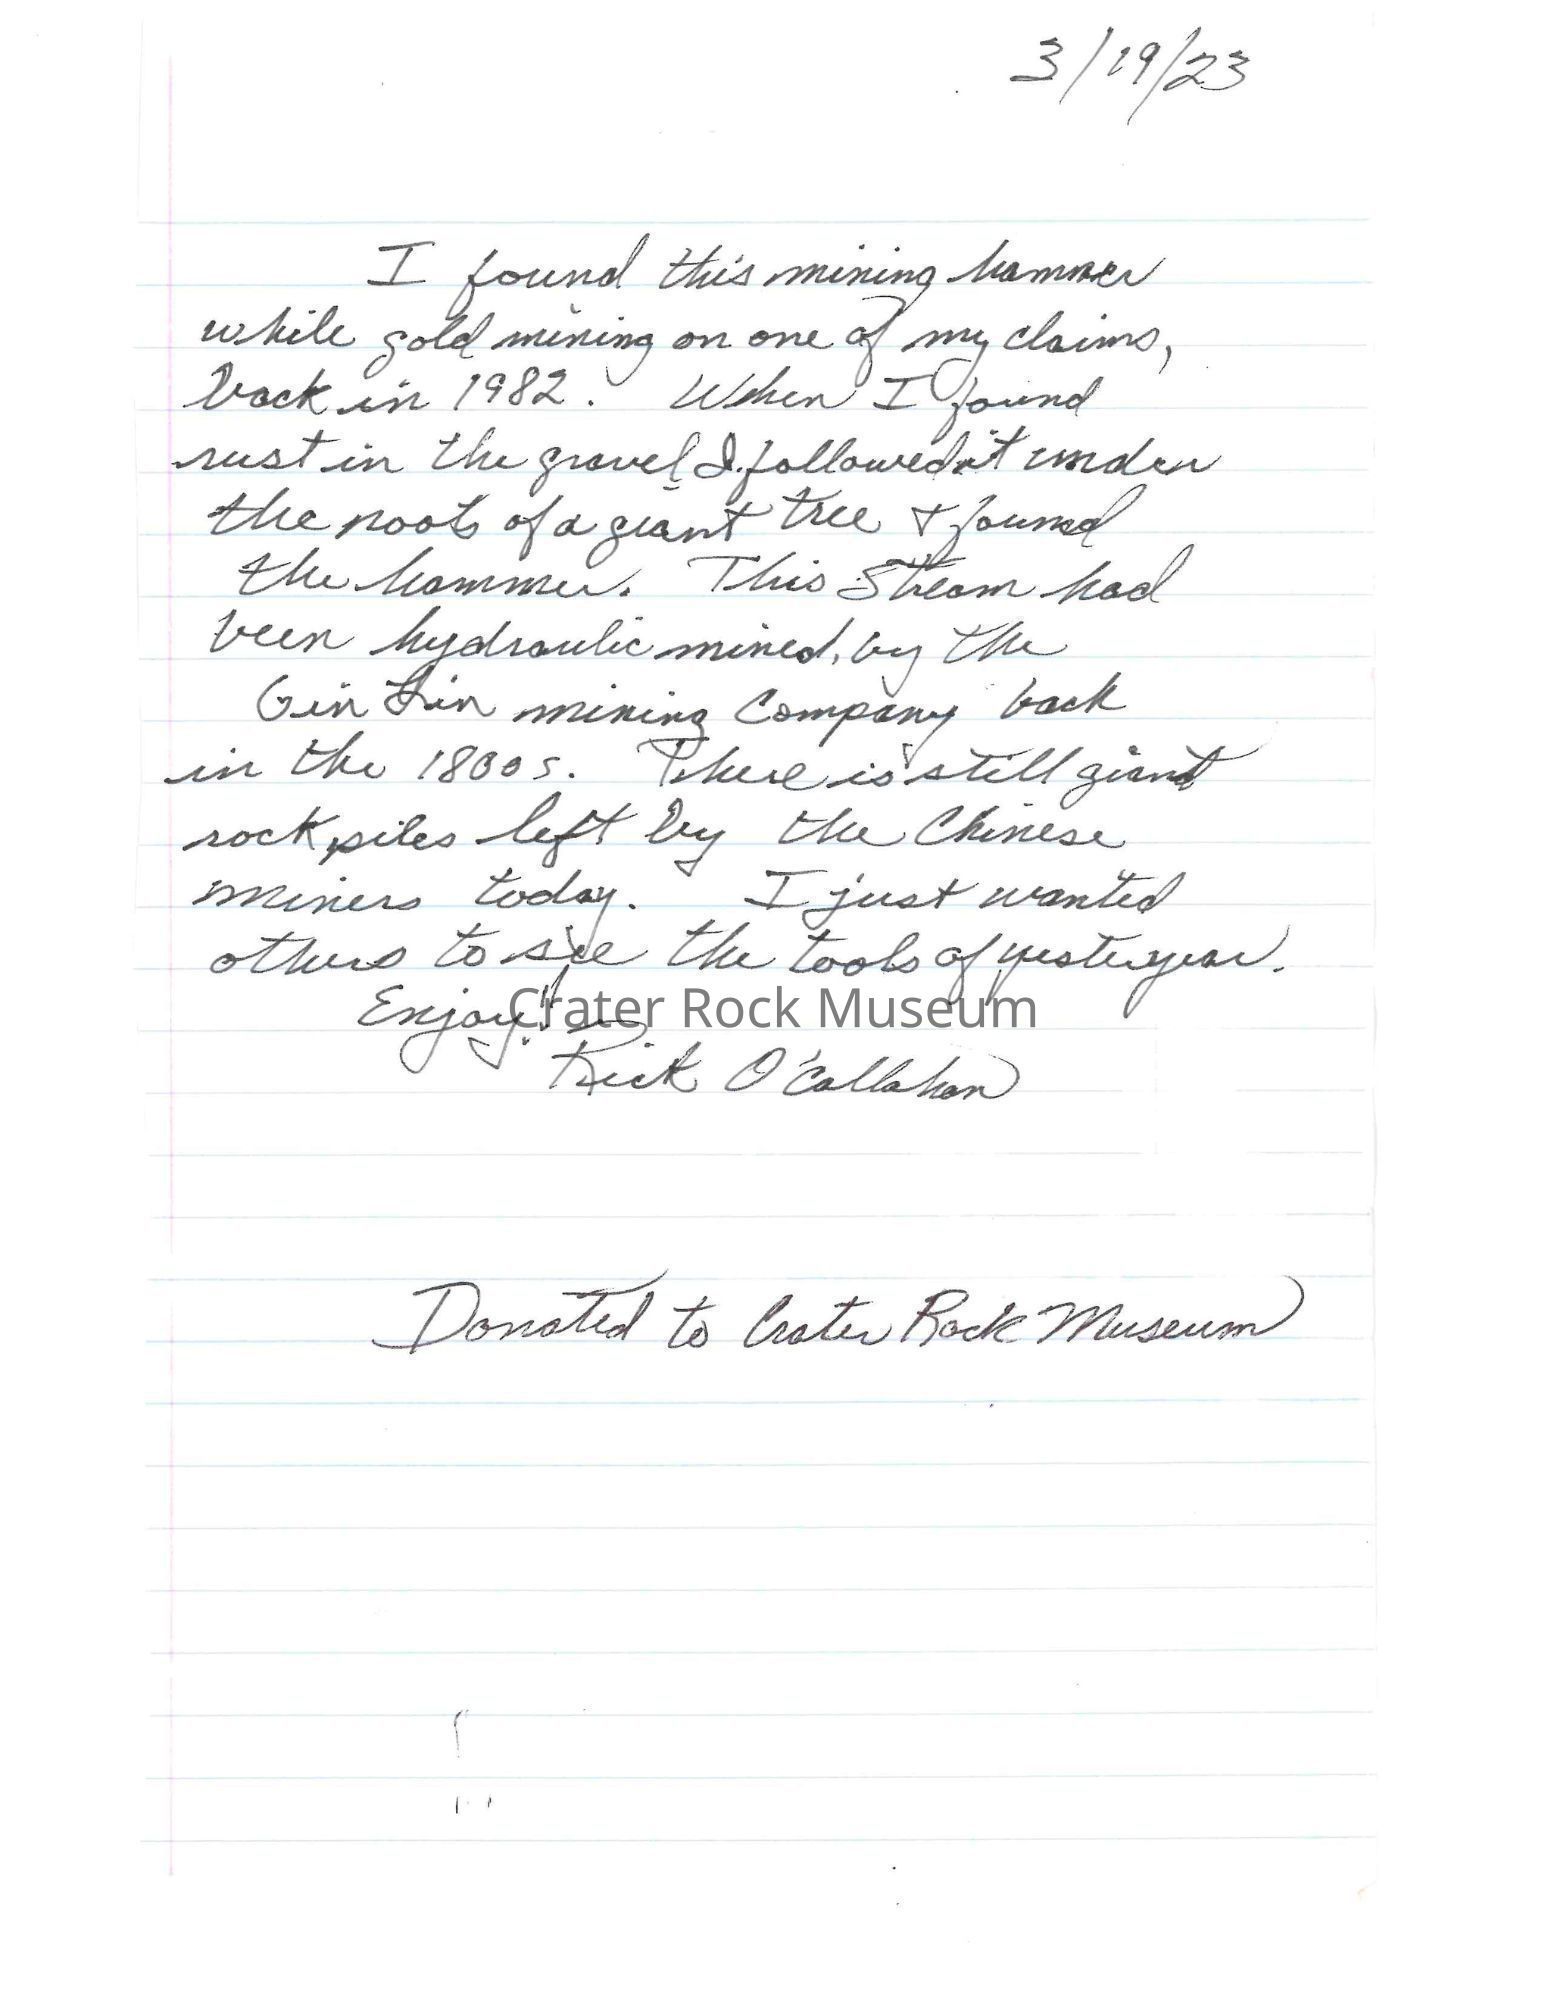 3/19/23
I found this mining hammer
while gold mining on one of my claims,
back in 1982. When I found
rust in the gravel I followed it under
the roots of a giant tree & found
the hammer. This Stream had
been hydraulic mined, by the
Gin Lin mining Company back
in the 1800s. There is still giant
rock piles left by the Chinese
miners today. I just wanted
others to see the tools of yesteryear.
Enjoy!!
Crater Rock Museum
Rick O'Callahan
Donated to Crater Rock Museum